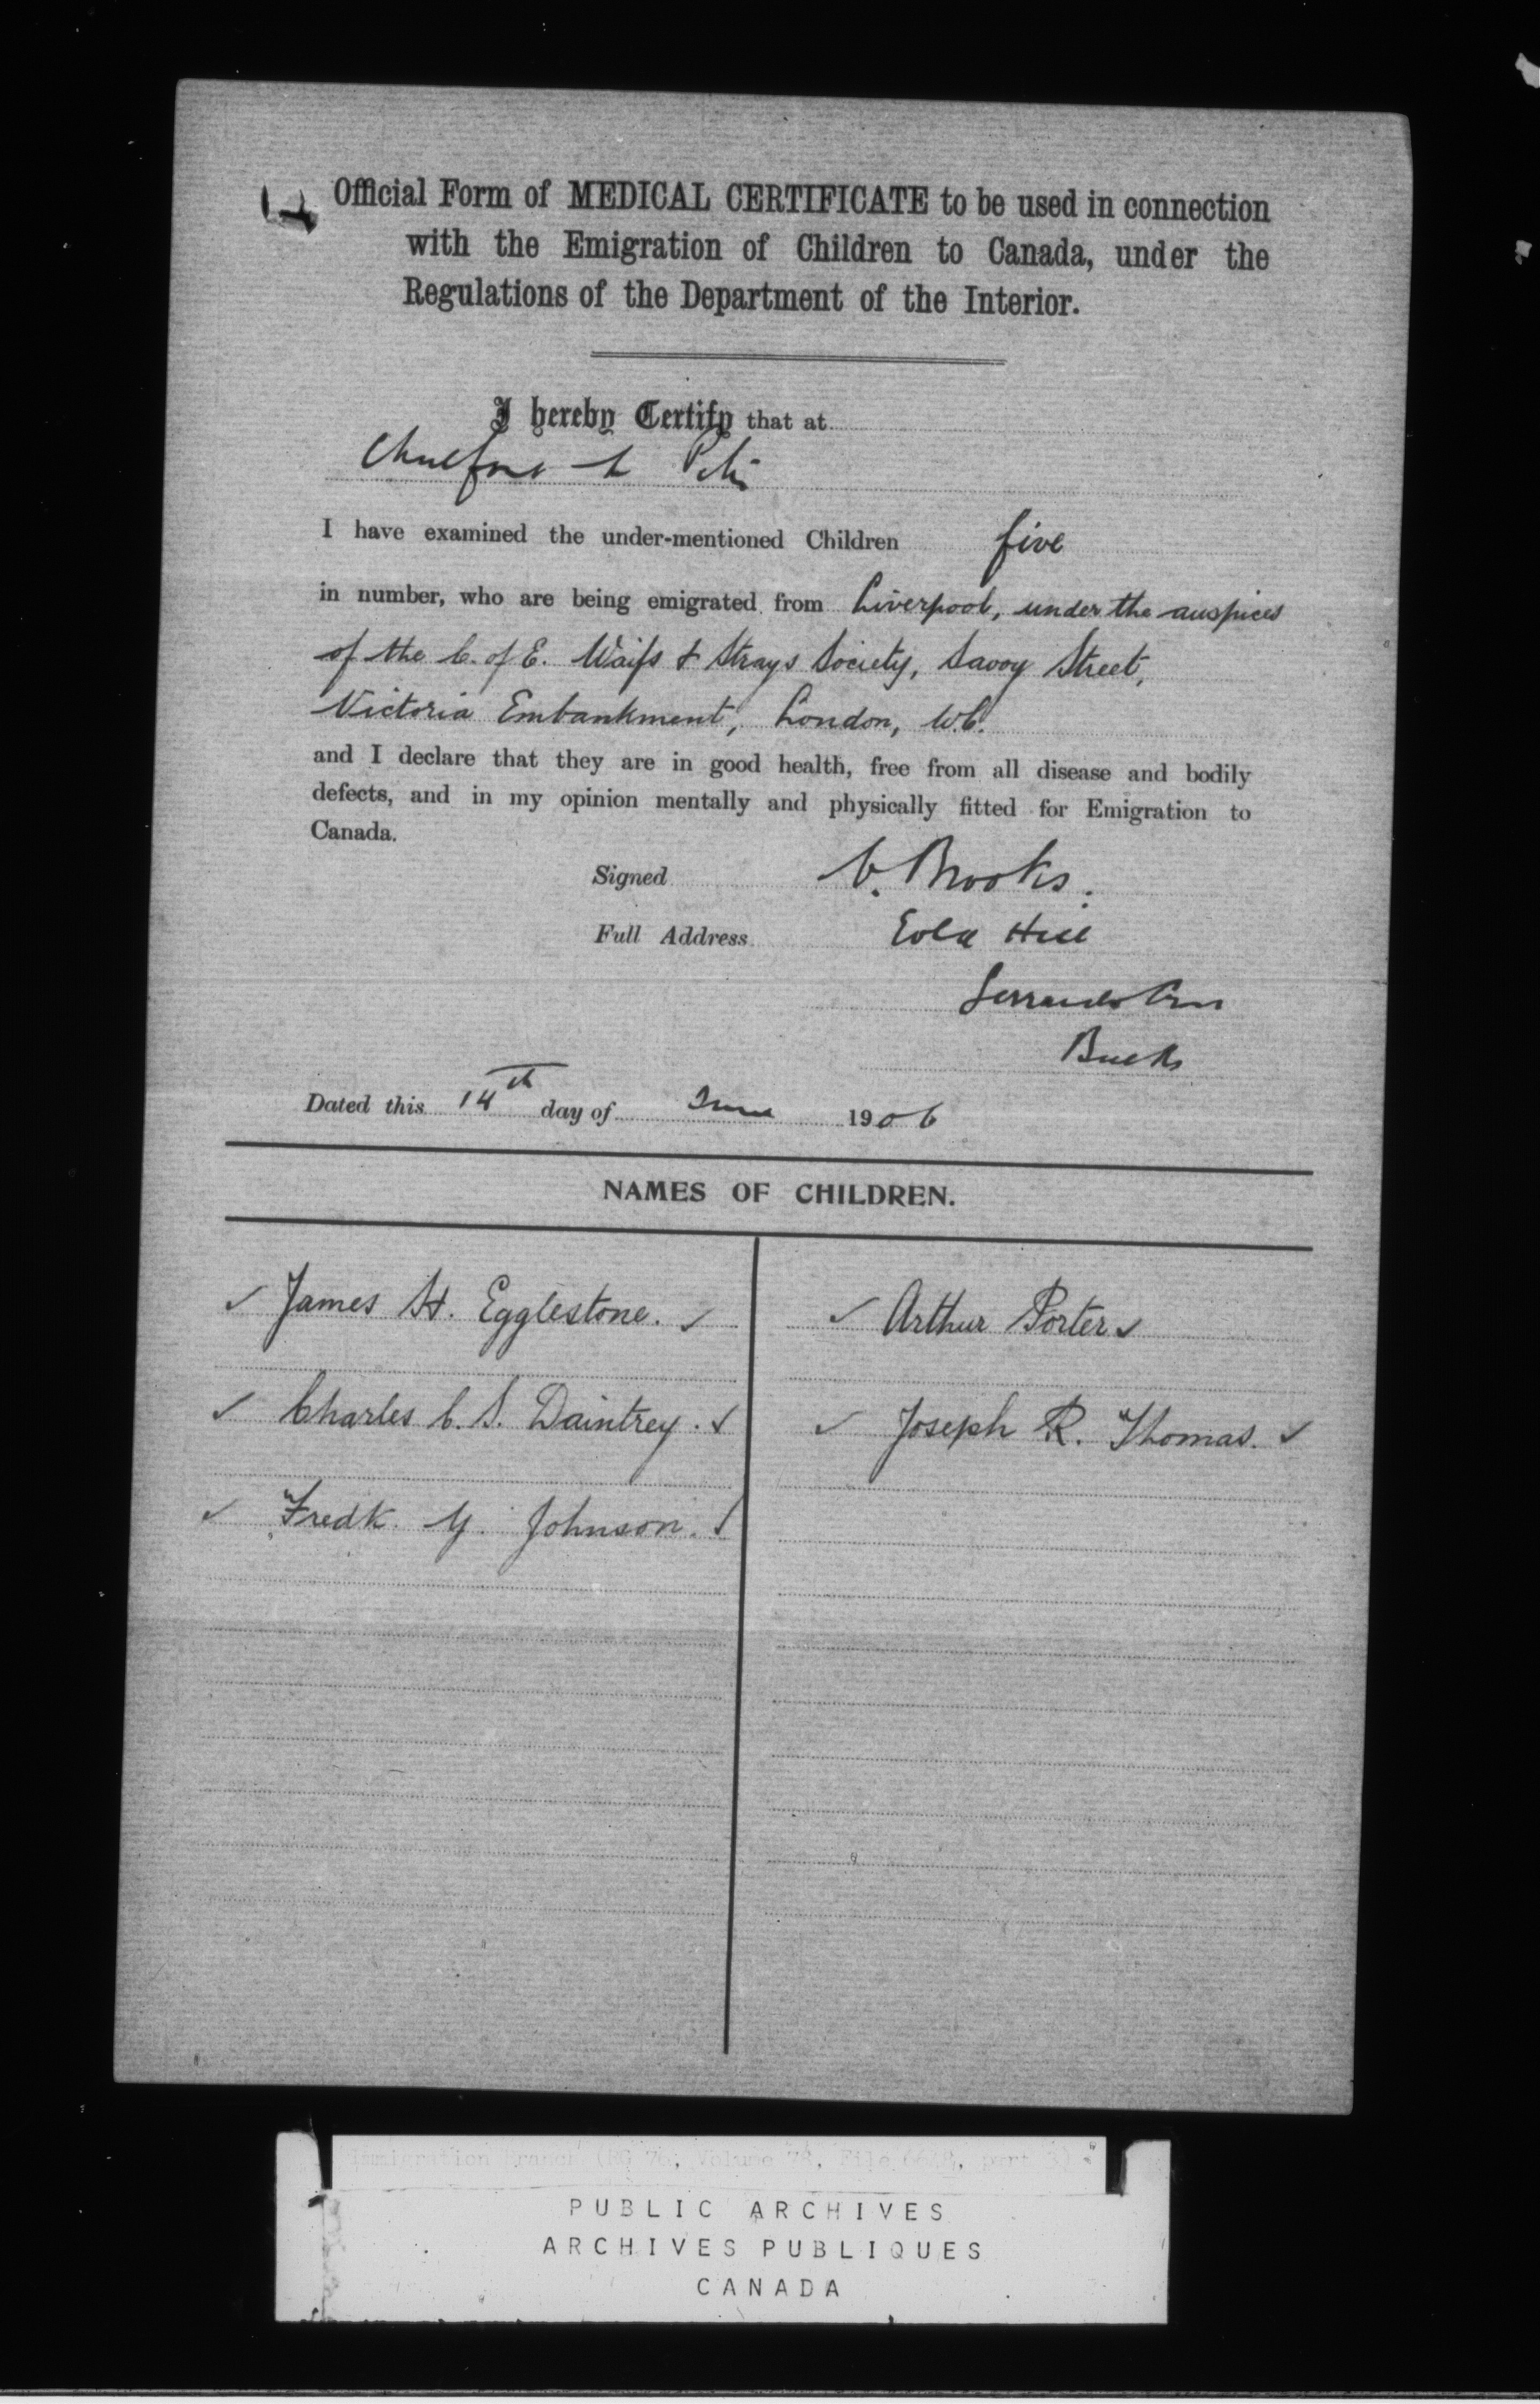 Official Form of MEDICAL CERTIFICATE to be used in connection
with the Emigration of Children to Canada, under the
Regulations of the Department of the Interior.
I hereby Certify that at
Chalfont St Peter
I have examined the under-mentioned Children five
in number, who are being emigrated from Liverpool, under the auspices
of the C. of E. Waifs & Strays Society, Savoy Street,
Victoria Embankment, London, W.C.
and I declare that they are in good health, free from all disease and bodily
defects, and in my opinion mentally and physically fitted for Emigration to
Canada.
Signed C. Brooks.
Full Address Hill
Gerrards Cross
Bucks
Dated this 14th day of June 1906
NAMES OF CHILDREN.
✓ James H. Egglestone. ✓
✓ Charles C. S. Daintrey. ✓
✓ Fredk. Johnson. ✓
✓ Arthur Porter ✓
✓ Joseph R. Thomas. ✓
Immigration Branch (RG 76, Volume 78, File, part 3)
PUBLIC ARCHIVES
ARCHIVES PUBLIQUES
CANADA